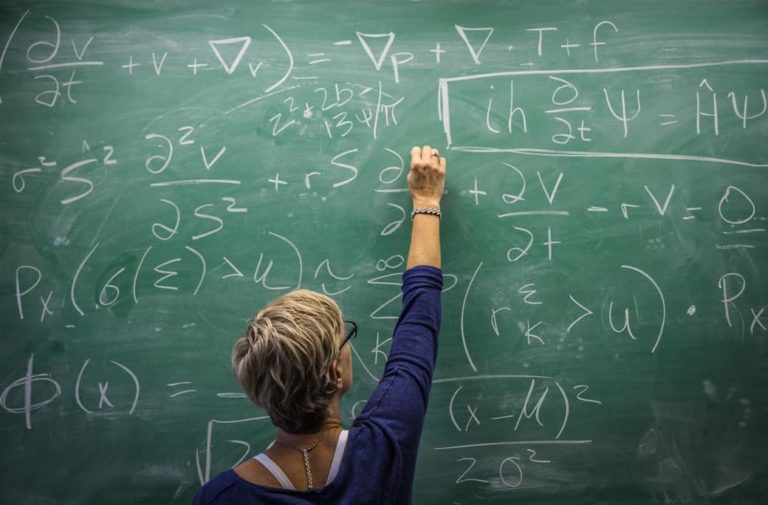 ( ∂v/∂t + v + ∇v ) = - ∇p + ∇ · T + f
z² + 2b 134/π
iħ ∂/∂t Ψ = ĤΨ
σ² S² ∂²V/∂S² + r S ∂ + ∂V/∂t - rV = 0
Px (σ(ε) > u) ~ ∞ Σ k ( r ε k > u ) · Px
Φ(x) = (x - μ)² / 2σ²
√2